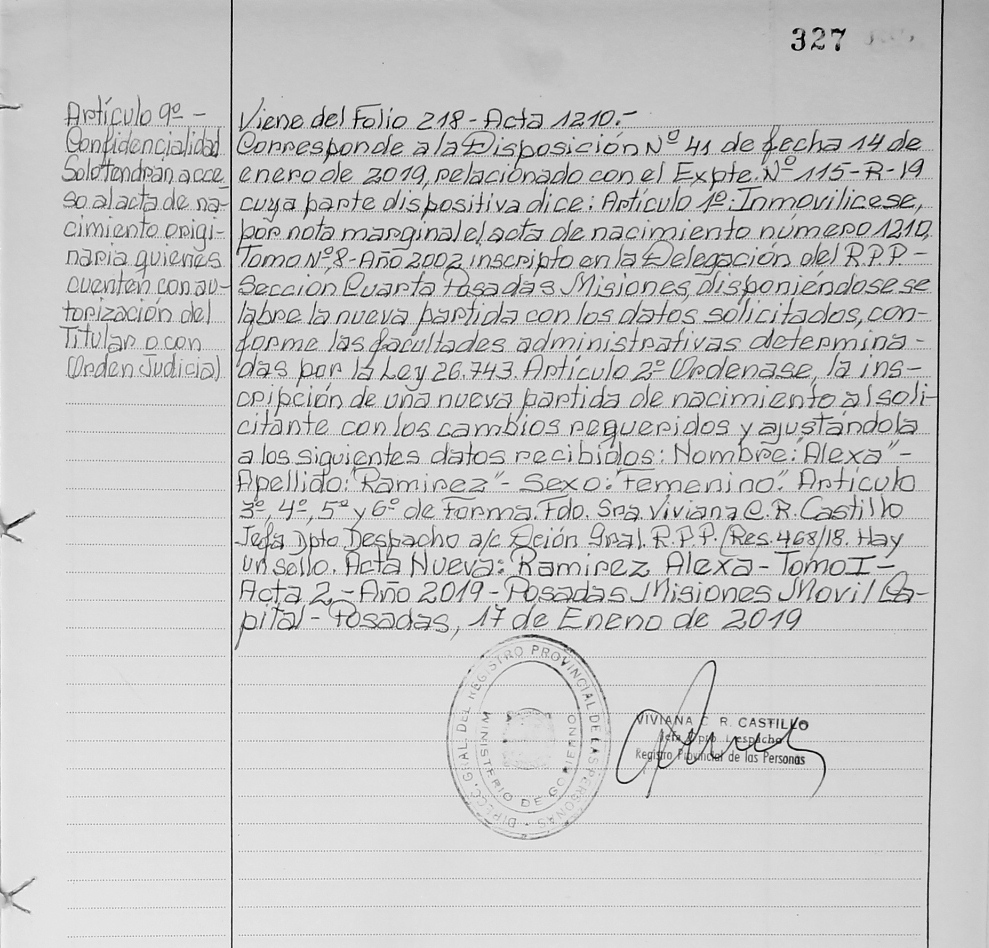 327
Artículo 9º -
Confidencialidad
Solo tendran acce-
so al acta de na-
cimiento origi-
naria quienes
cuenten con au-
torización del
Titular o con
(Orden Judicial)
Viene del Folio 218 - Acta 1210.-
Corresponde a la Disposición Nº 41 de fecha 14 de
enero de 2019, relacionado con el Expte. Nº 115-R-19
cuya parte dispositiva dice: Artículo 1º: Inmovilicese,
por nota marginal el acta de nacimiento número 1210,
Tomo Nº 8 - Año 2002 inscripto en la Delegación del R.P.P -
Sección Cuarta Posadas Misiones, disponiéndose se
labre la nueva partida con los datos solicitados, con-
forme las facultades administrativas determina-
das por la Ley 26.743. Artículo 2º Ordenase, la ins-
cripción de una nueva partida de nacimiento al soli-
citante con los cambios requeridos y ajustándola
a los siguientes datos recibidos: Nombre: "Alexa" -
Apellido: "Ramirez" - Sexo: "Femenino". Artículo
3º, 4º, 5º y 6º de Forma. Fdo. Sra. Viviana C. R. Castillo
Jefa Dpto Despacho a/c Dción Gral. R.P.P. (Res. 468/18. Hay
un sello. Acta Nueva: Ramirez Alexa - Tomo I -
Acta 2 - Año 2019 - Posadas Misiones Movil Ca-
pital - Posadas, 17 de Enero de 2019
DIRECC. GRAL. DEL REGISTRO PROVINCIAL DE LAS PERSONAS
MINISTERIO DE GOBIERNO
VIVIANA C. R. CASTILLO
Jefa Dpto. Despacho
Registro Provincial de las Personas